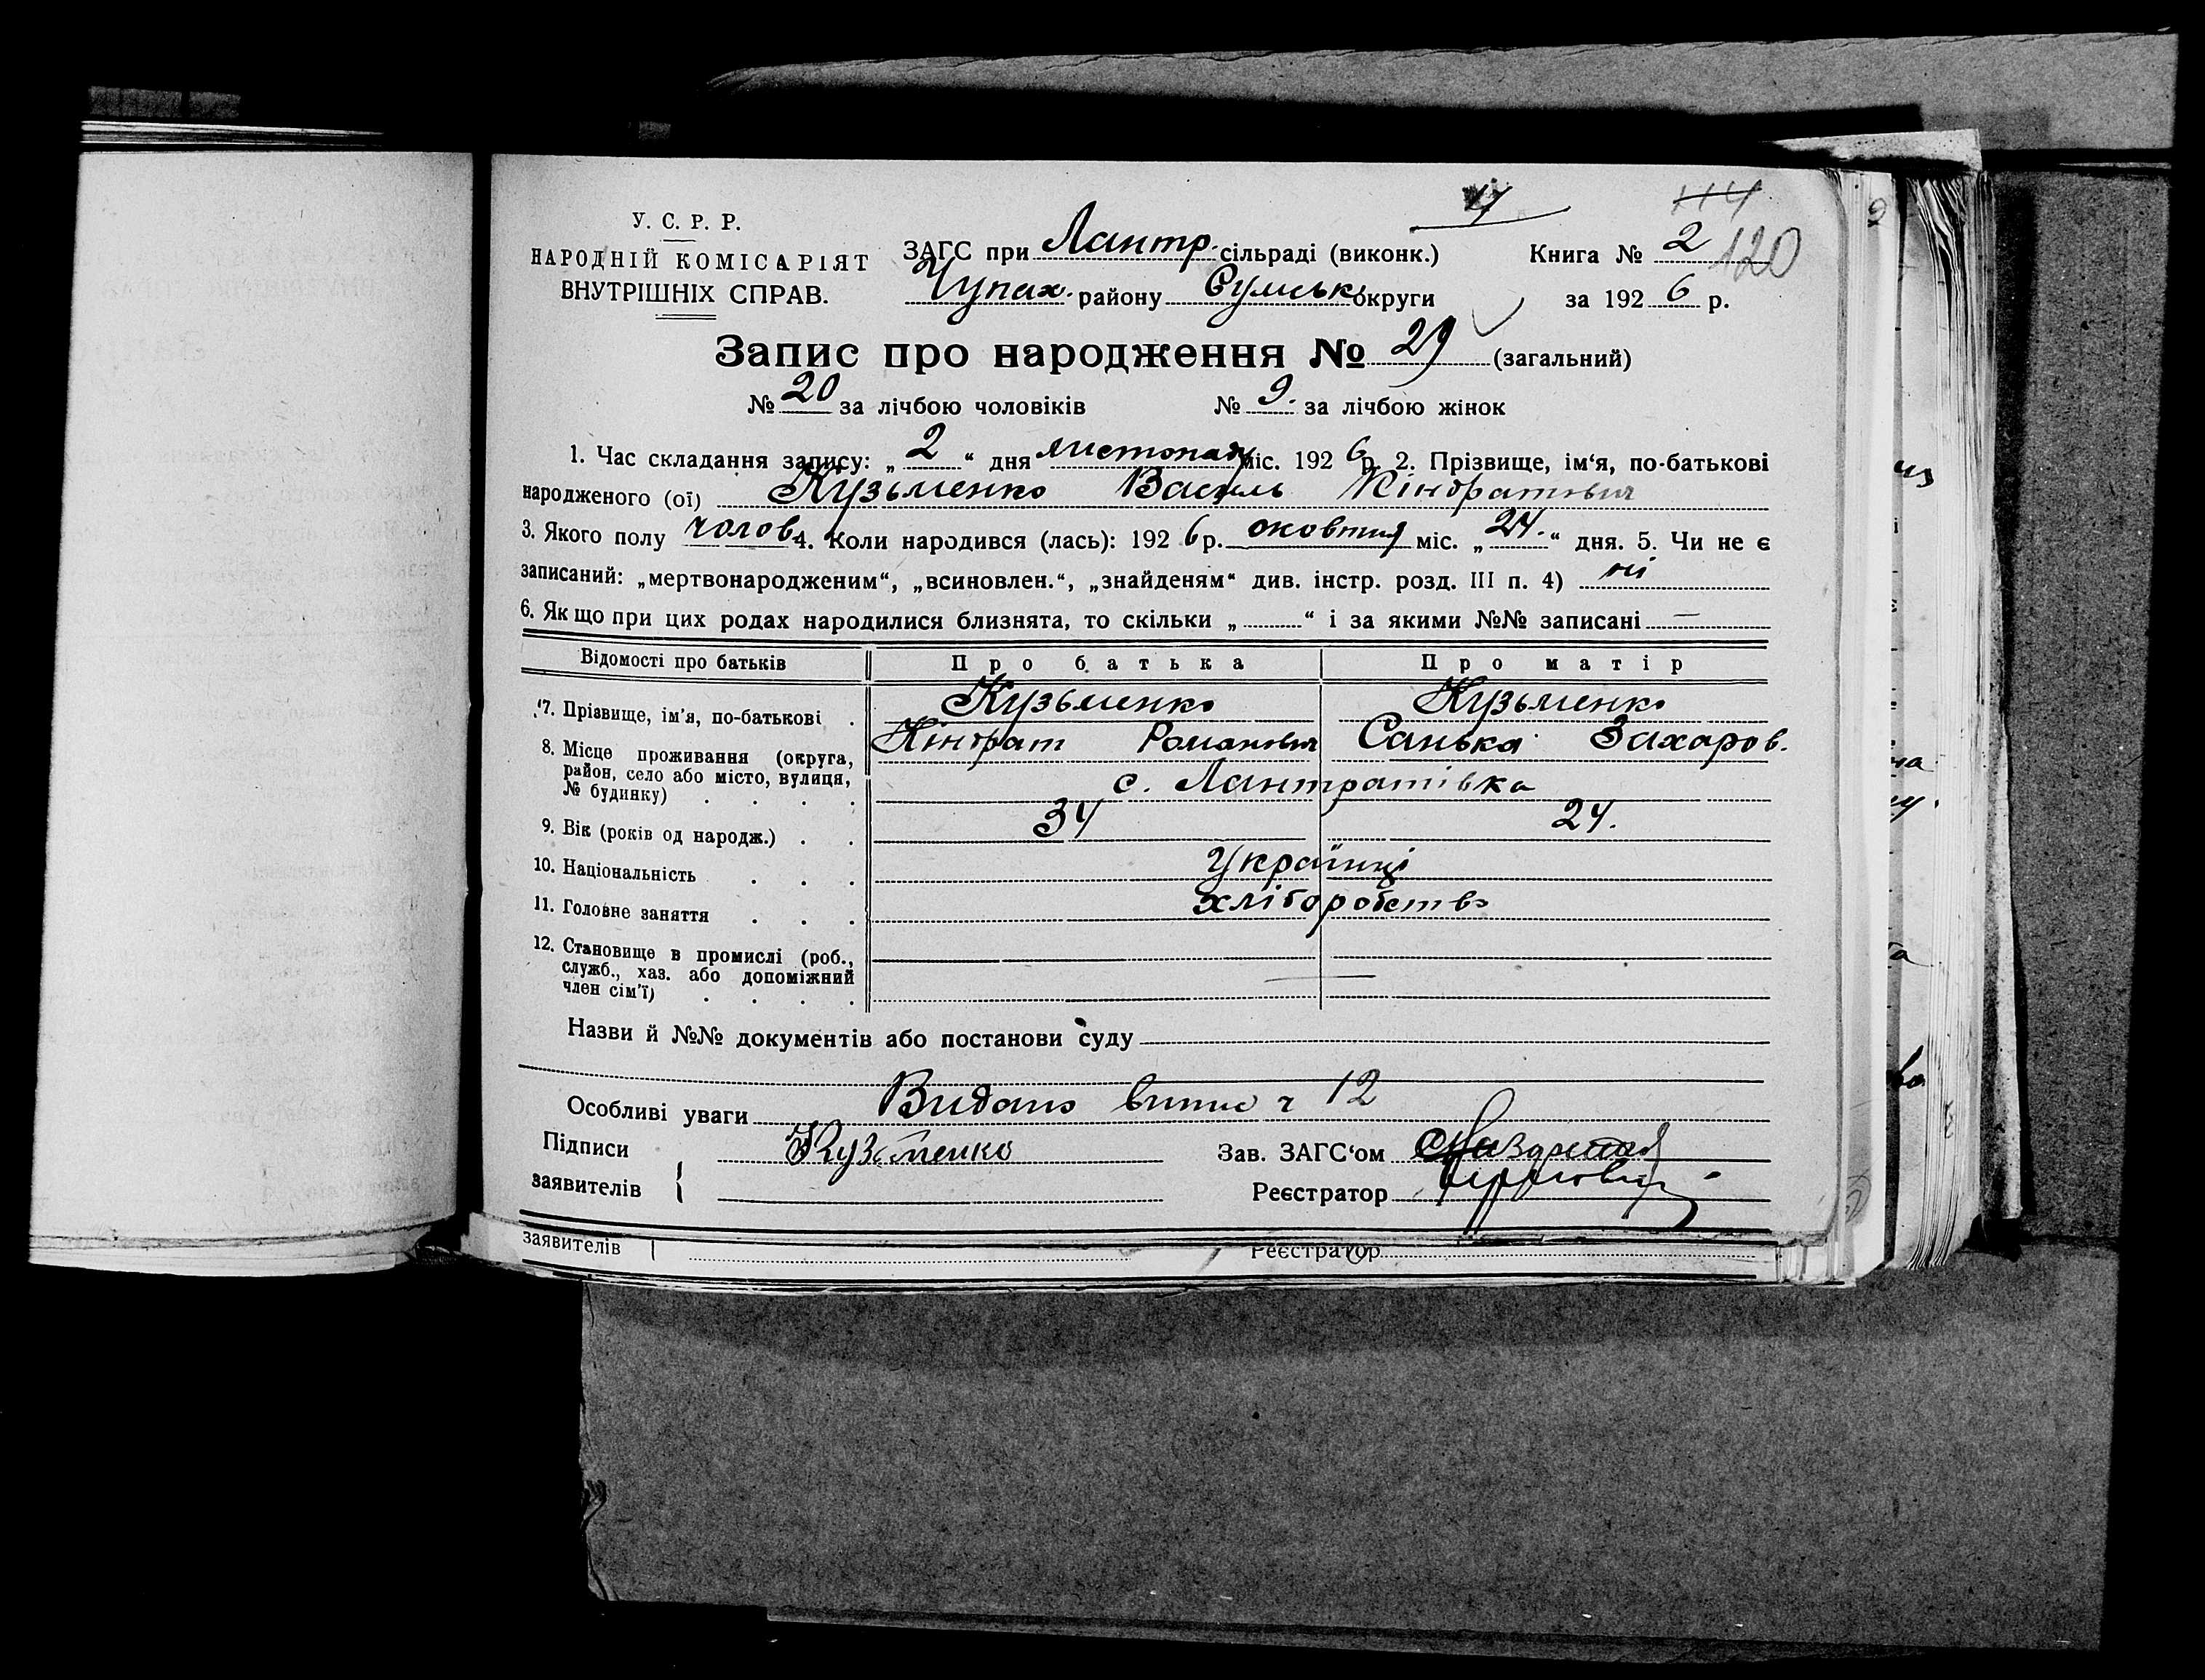 114
У. С. Р. Р.
НАРОДНІЙ КОМІСАРІЯТ
ВНУТРІШНІХ СПРАВ.
ЗАГС при Лантр. сільраді (виконк.)
Чупах. району Сумськ округи
Книга № 2 120
за 1926 р.
Запис про народження № 29 (загальний)
№ 20 за лічбою чоловіків № 9. за лічбою жінок
1. Час складання запису: „ 2 “ дня листопаду міс. 1926 р. 2. Прізвище, ім‘я, по-батькові
народженого (ої) Кузьменко Василь Кіндратович
3. Якого полу чолов. 4. Коли народився (лась): 1926 р. жовтня міс. „ 24. “ дня. 5. Чи не є
записаний: „мертвонародженим“, „всиновлен.“, „знайденям“ див. інстр. розд. III п. 4) ні
6. Як що при цих родах народилися близнята, то скільки „ “ і за якими №№ записані —
Відомості про батьків Про батька Про матір
7. Прізвище, ім'я, по-батькові . Кузьменко Кузьменко
Кіндрат Романович Санька Захаров.
8. Місце проживання (округа,
район, село або місто, вулиця,
№ будинку) . . . . с. Лантратівка
9. Вік (років од народж.) . . 34 24.
10. Національність . . . Українці
11. Головне заняття . . . хліборобство
12. Становище в промислі (роб.,
служб., хаз. або допоміжний
член сім'ї) . . . . —
Назви й №№ документів або постанови суду
Особливі уваги Видано випис ч 12
Підписи
заявителів
Кузьменко
Зав. ЗАГС‘ом
Реєстратор
заявителів Реєстратор